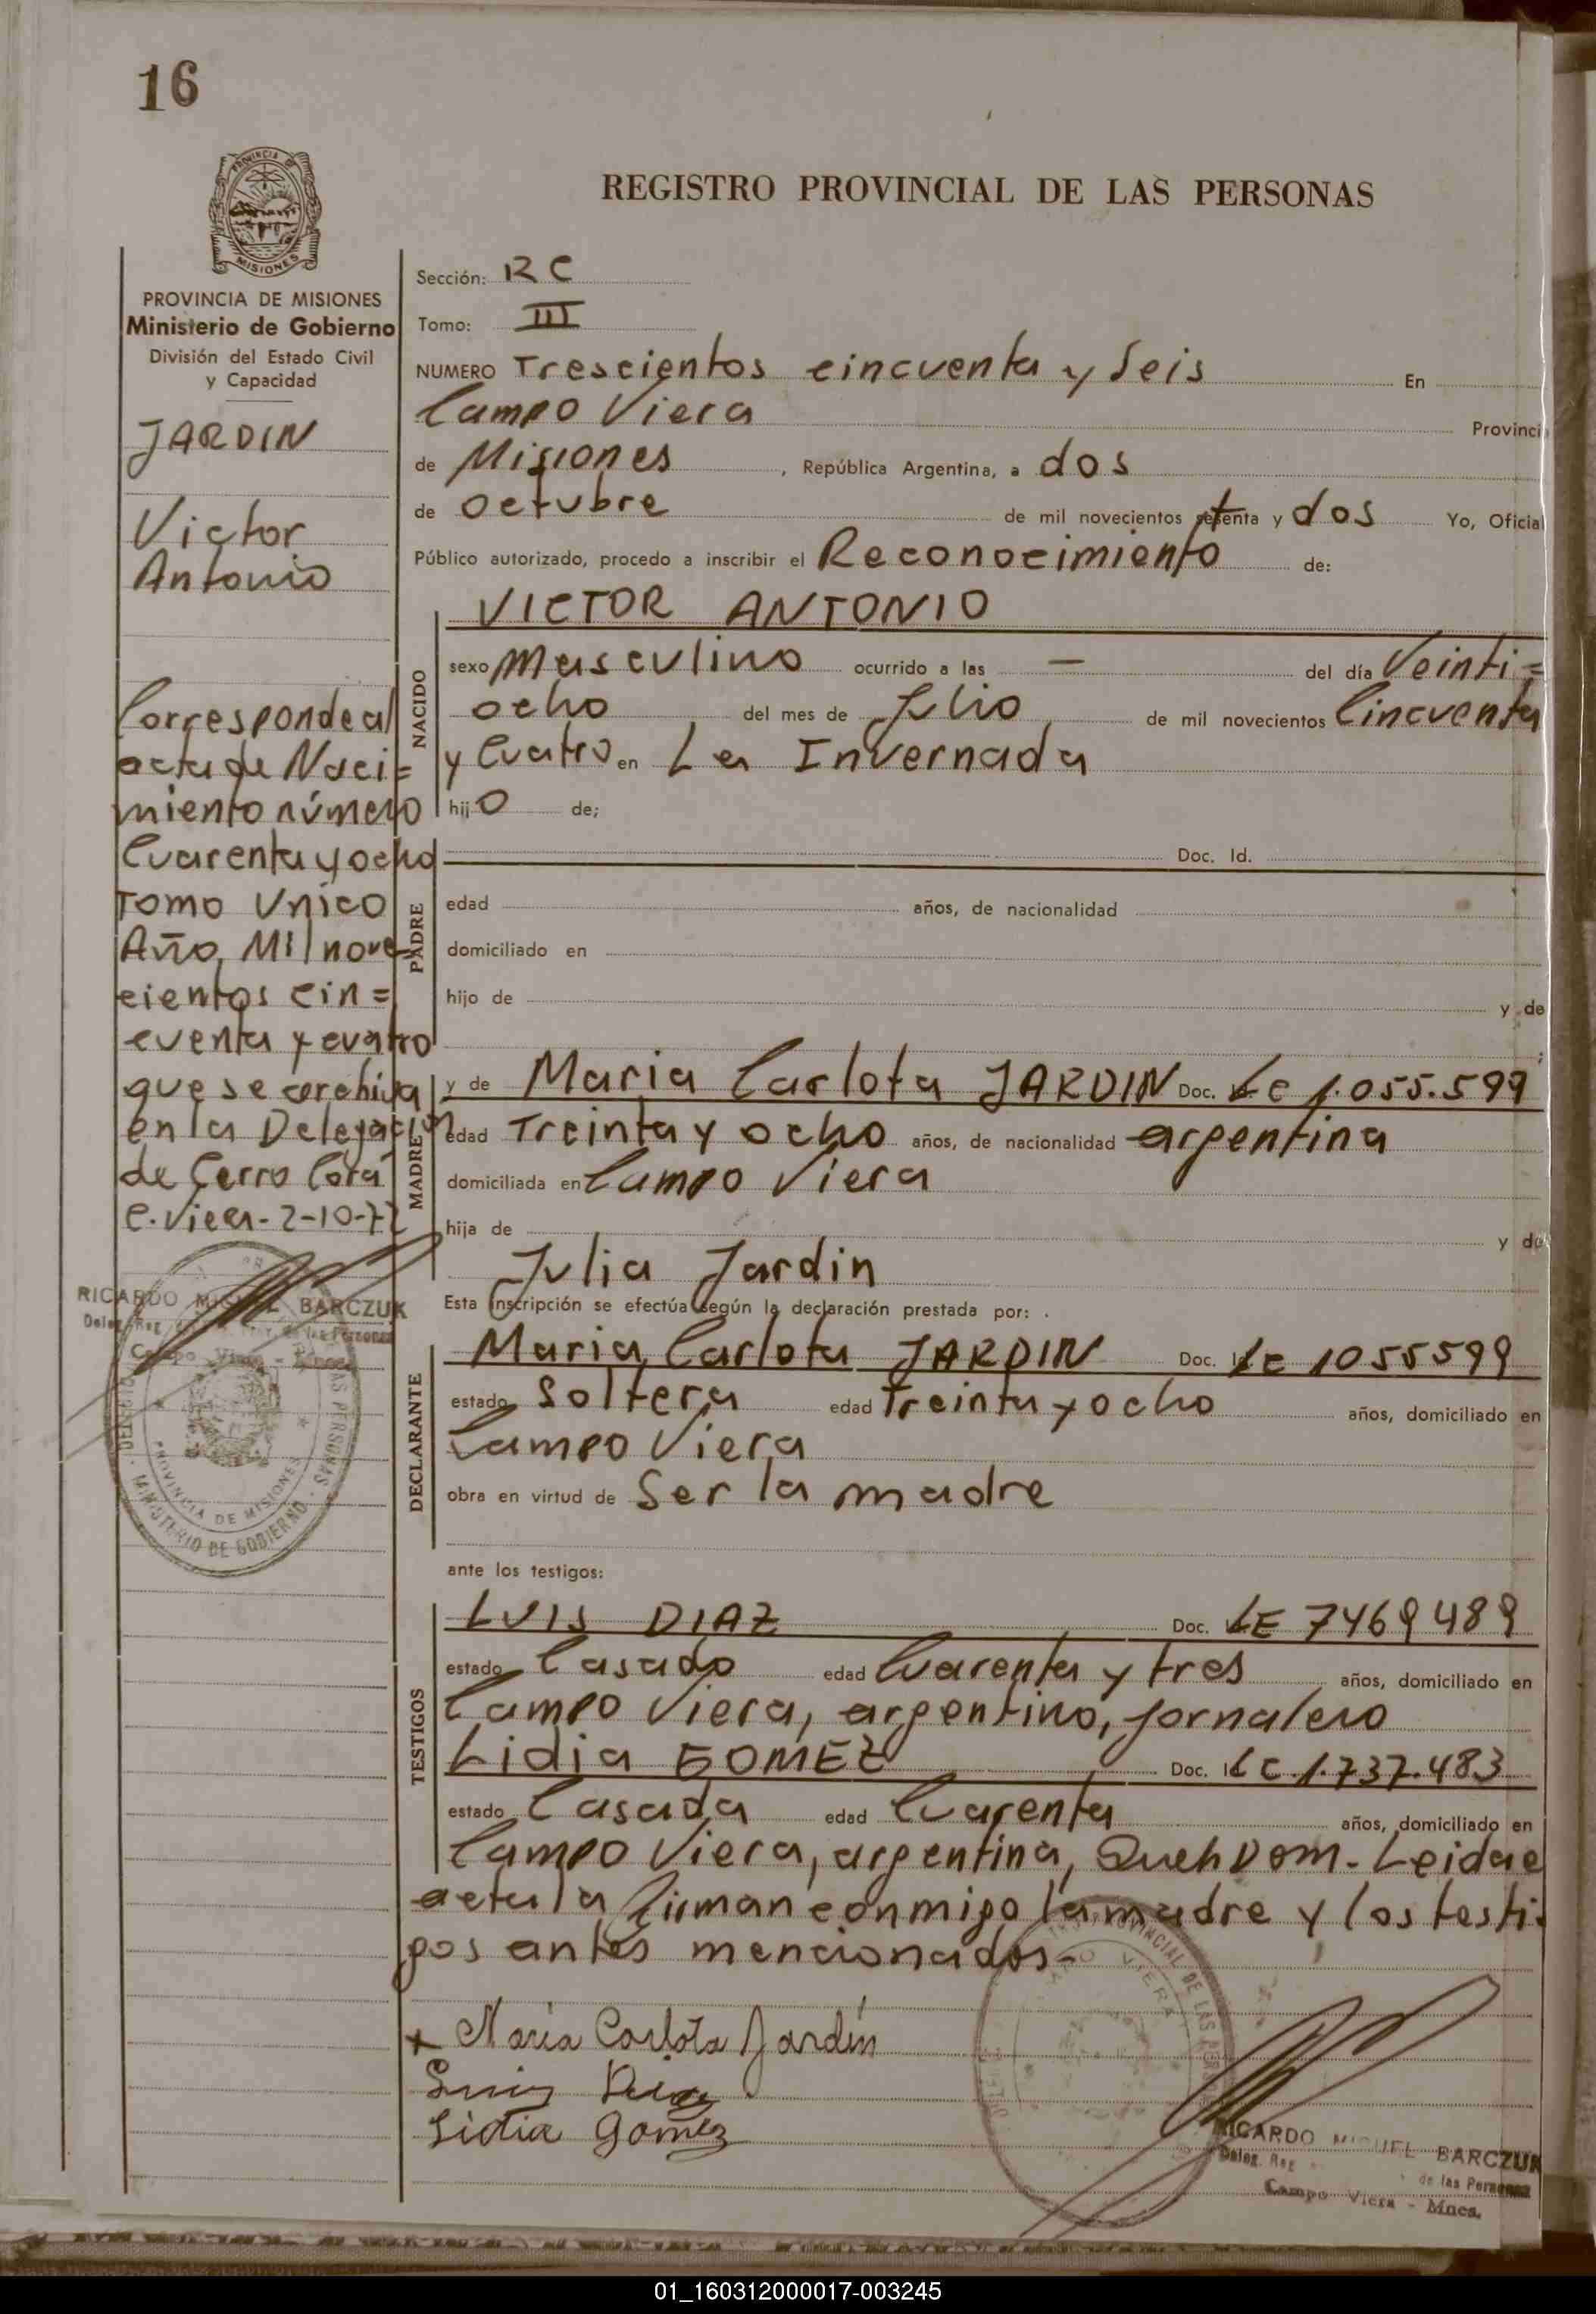 16
PROVINCIA DE
MISIONES
REGISTRO PROVINCIAL DE LAS PERSONAS
PROVINCIA DE MISIONES
Ministerio de Gobierno
División del Estado Civil
y Capacidad
JARDIN
Victor
Antonio
Corresponde al
acta de Naci=
miento número
Cuarenta y ocho
Tomo Unico
Año, Mil nove
cientos cin=
cuenta y cuatro
que se archiva
en la Delegación
de Cerro Corá
C. Viera - 2-10-72
RICARDO MIGUEL BARCZUK
Deleg. Reg. de las Personas
Campo Viera -
PROVINCIA DE MISIONES
MINISTERIO DE GOBIERNO
Sección: RC
Tomo: III
NUMERO Trescientos cincuenta y Seis En
Campo Viera Provinci
de Misiones, República Argentina, a dos
de Octubre de mil novecientos setenta y dos Yo, Oficial
Público autorizado, procedo a inscribir el Reconocimiento de:
NACIDO
VICTOR ANTONIO
sexo masculino ocurrido a las — del día Veinti=
ocho del mes de Julio de mil novecientos Cincuenta
y Cuatro en La Invernada
hijo de;
PADRE
Doc. Id.
edad años, de nacionalidad
domiciliado en
hijo de y de
;
MADRE
y de Maria Carlota JARDIN Doc. LC 1.055.599
edad Treinta y ocho años, de nacionalidad argentina
domiciliada en Campo Viera
hija de y de
Julia Jardin
Esta inscripción se efectúa según la declaración prestada por: .
DECLARANTE
Maria Carlota JARDIN Doc. LC 1055599
estado Soltera edad Treinta y ocho años, domiciliado en
Campo Viera
obra en virtud de Ser la madre
ante los testigos:
TESTIGOS
LUIS DIAZ Doc. LE 7469489
estado Casado edad Cuarenta y tres años, domiciliado en
Campo Viera, argentino, jornalero
Lidia GOMEZ Doc. LC. 1.737.483
estado Casada edad Cuarenta años, domiciliado en
Campo Viera, argentina, Queh Dom. Leida e
acta la firman conmigo la madre y los testi=
gos antes mencionados-
x Maria Carlota Jardín
Luis Diaz
Lidia Gomez
RICARDO MIGUEL BARCZUK
Deleg. Reg. de las Personas
Campo Viera - Mnes.
01_160312000017-003245